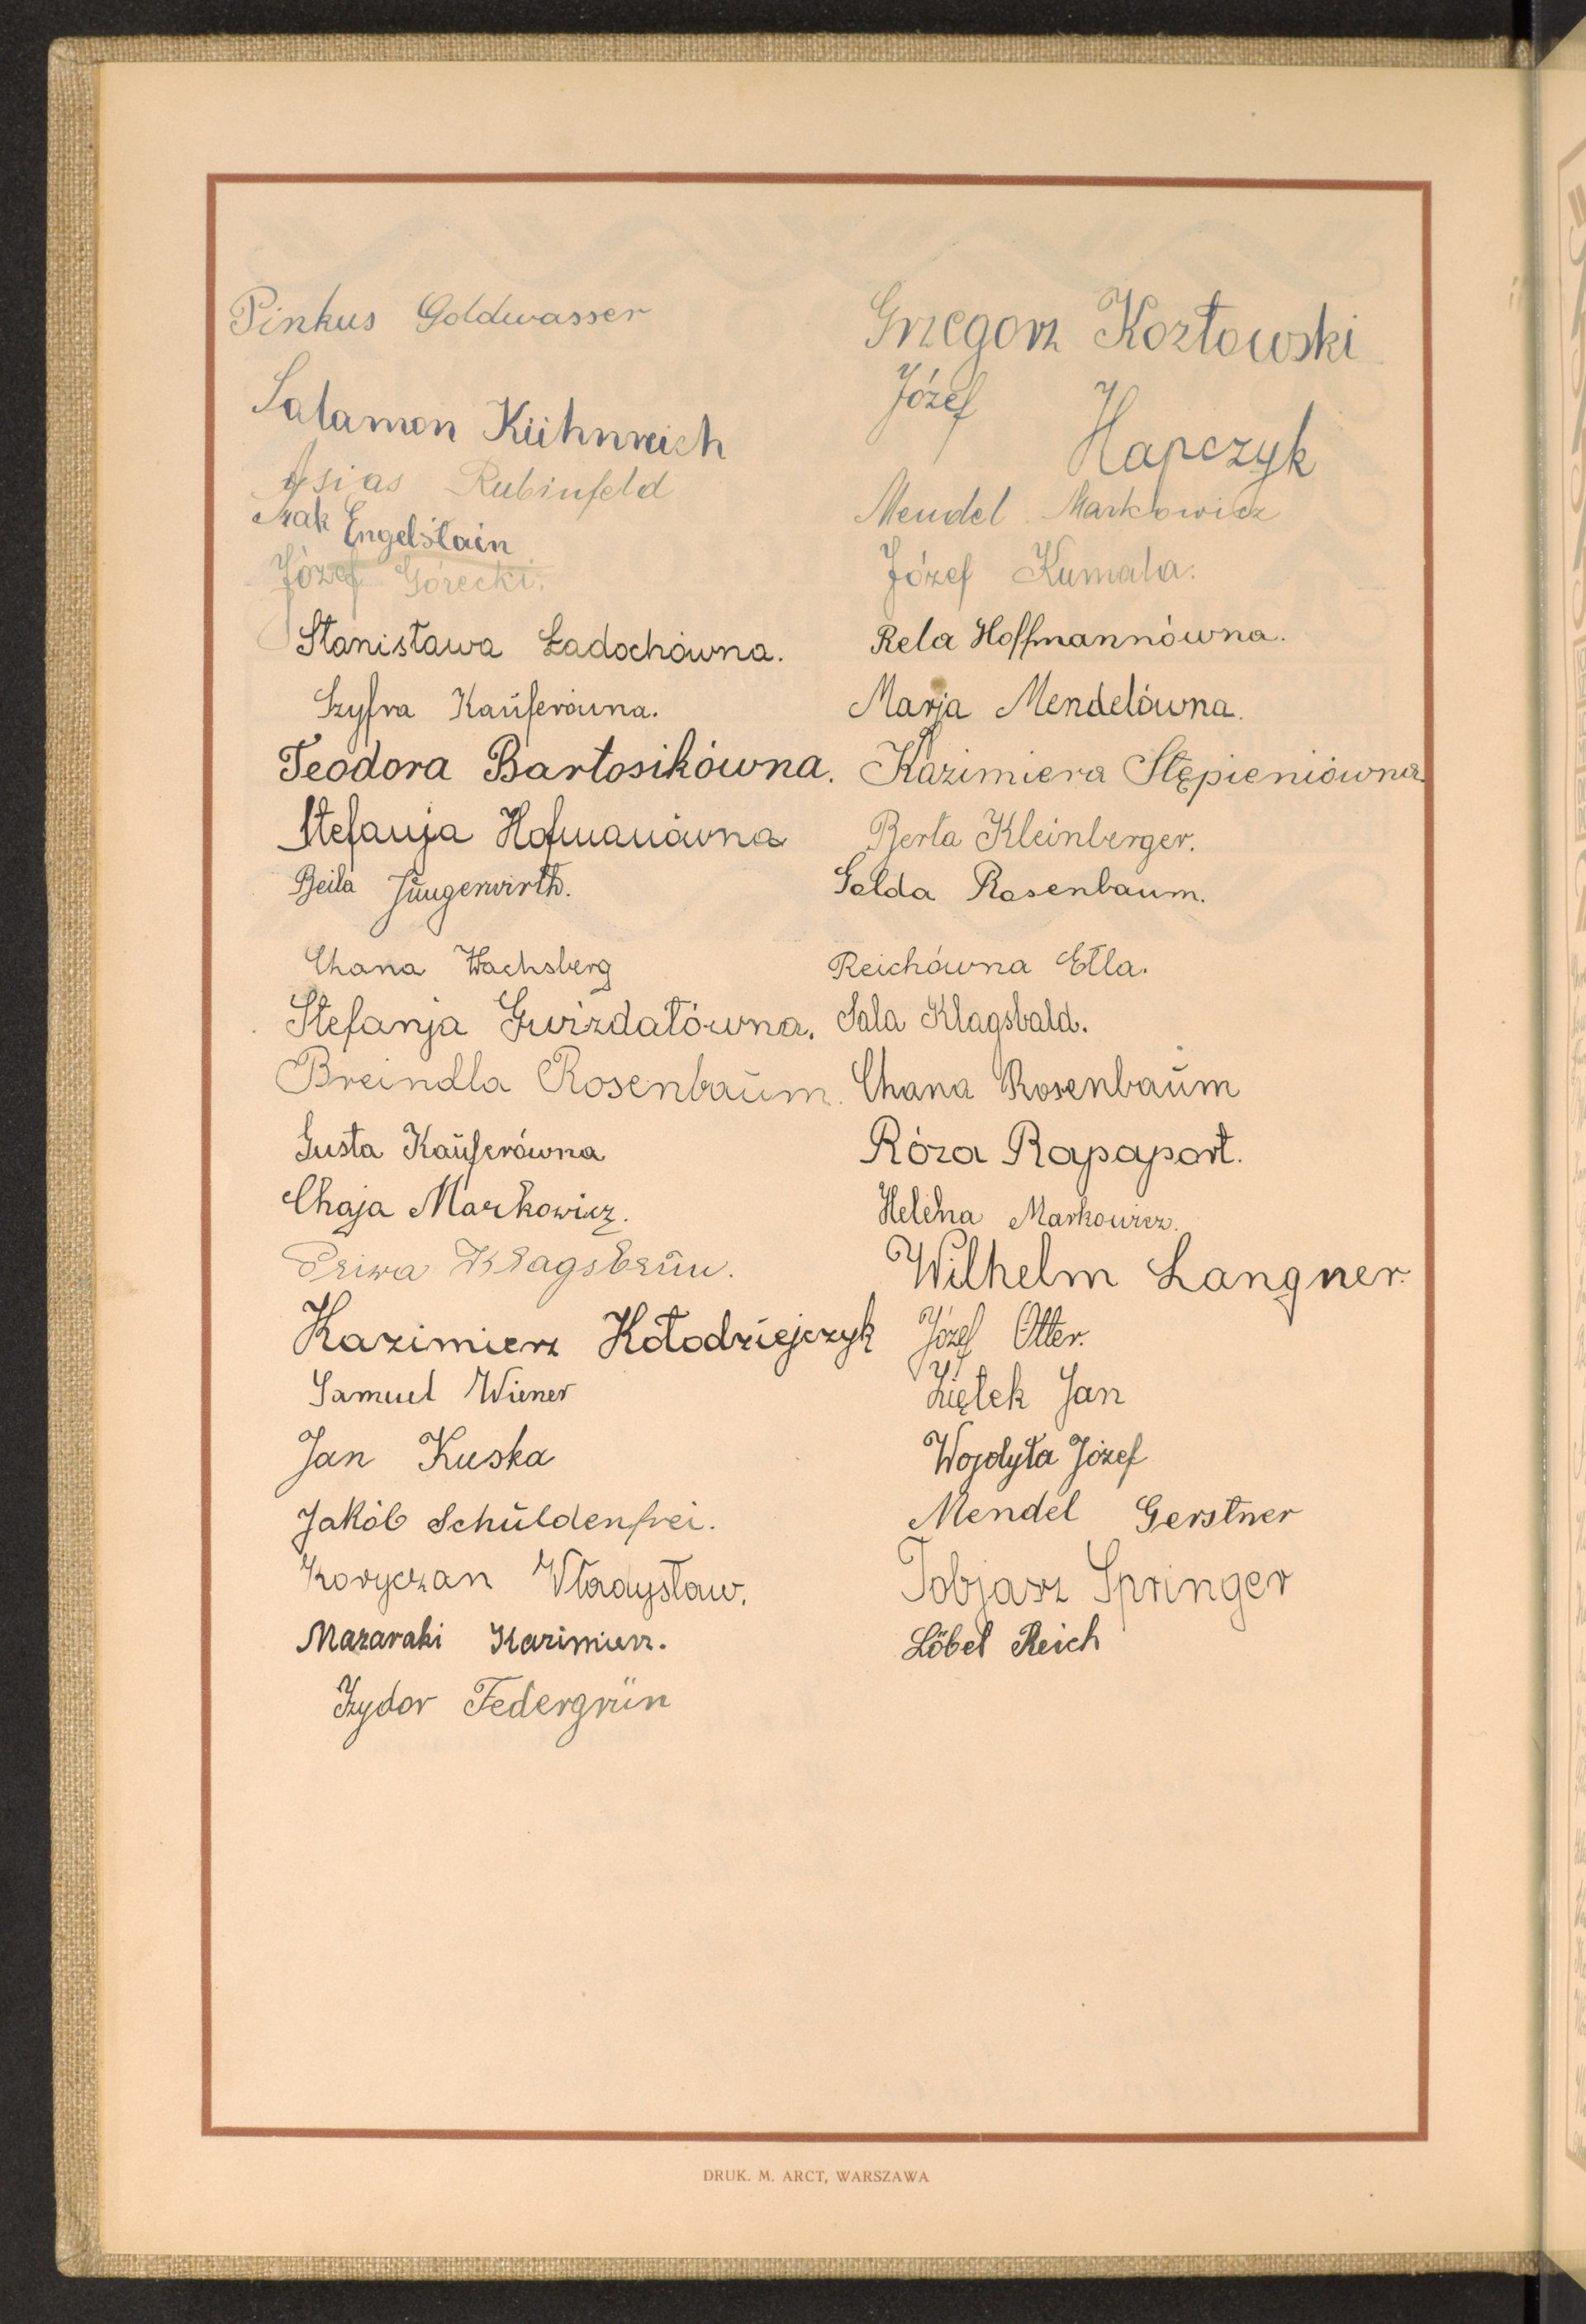 Pinkus Goldwasser
Salamon Kühnreich
Asias Rubinfeld
Izak Engelstain
Józef Górecki.
Stanisława Ładochówna.
Szyfra Kaŭferówna.
Teodora Bartosikówna.
Stefanja Hofmanówna
Beila Jŭngerwirth.
Chana Wachsberg
Stefanja Gwizdałówna.
Breindla Rosenbaŭm.
Gusta Kaŭferówna
Chaja Markowicz.
Klagsbrŭn.
Kazimierz Kołodziejczyk
Samuel Wiener
Jan Kuska
Jakób Schŭldenfrei.
Koryczan Władysław.
Mazaraki Kazimierz.
Izydor Federgrün
Grzegorz Kozłowski
Józef Hapczyk
Mendel Markowicz
Józef Kumala.
Rela Hoffmannówna.
Marja Mendelówna.
Kazimiera Stępieniówna.
Berta Kleinberger.
Golda Rosenbaum.
Reichówna Etla.
Sala Klagsbald.
Chana Rosenbaŭm
Róza Rapaport.
Helena Markowicz.
Wilhelm Langner.
Józef Otter.
Ziętek Jan
Wojdyła Józef
Mendel Gerstner
Tobjasz Springer
Löbel Reich
DRUK. M. ARCT, WARSZAWA